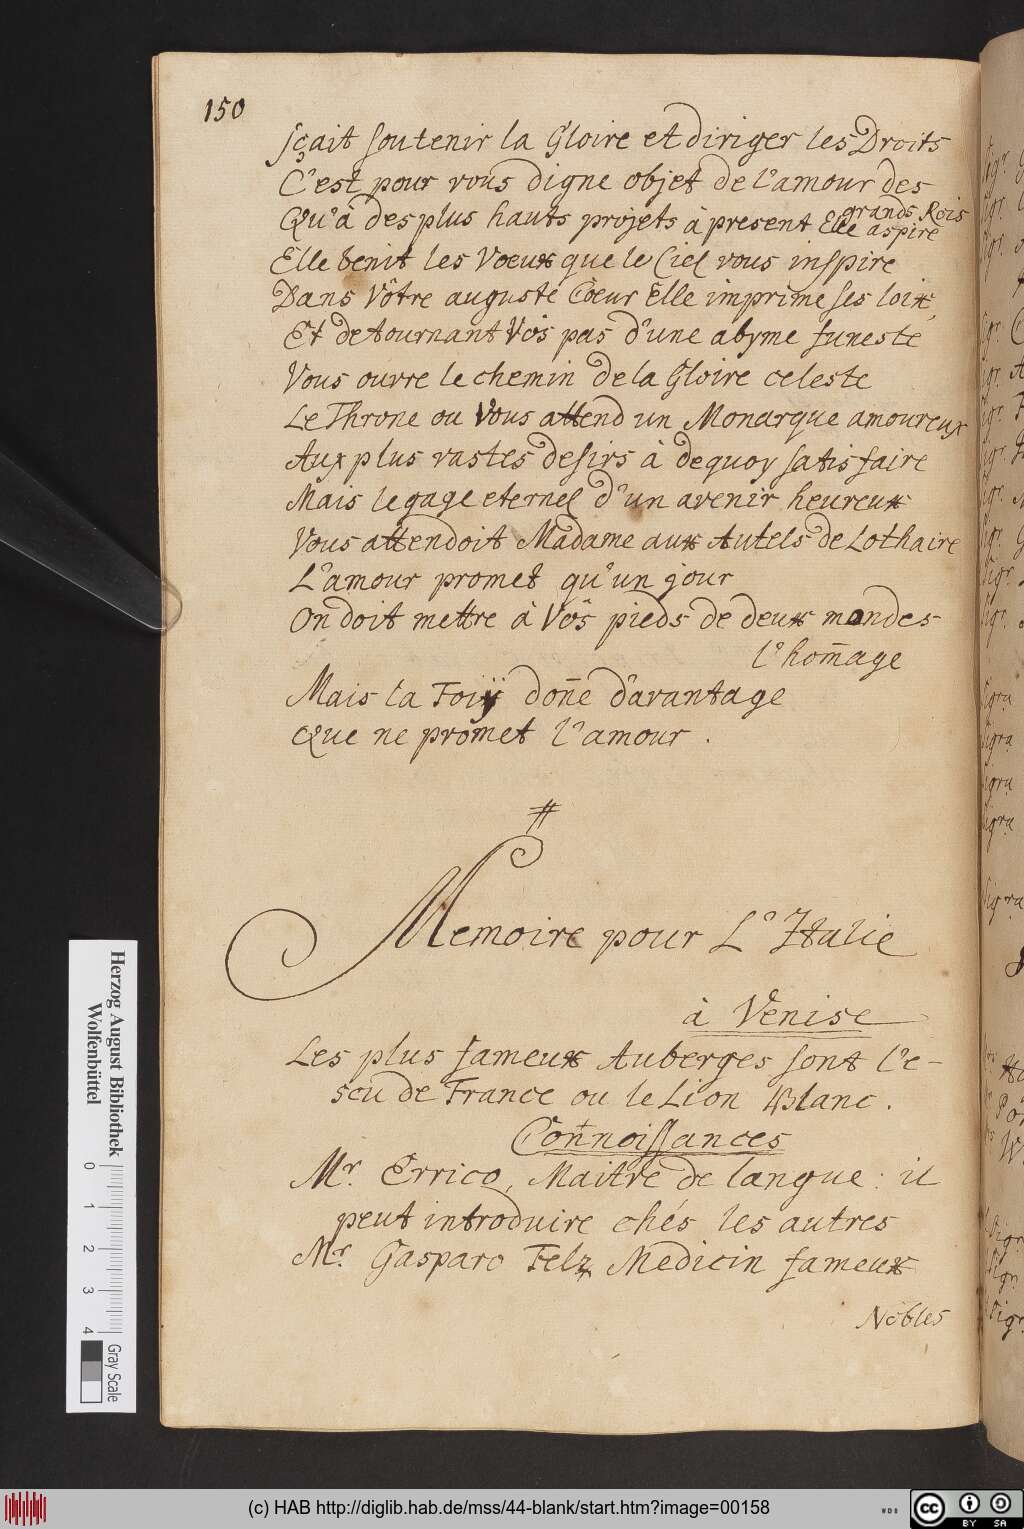 150
sçait soutenir la Gloire et diriger les Droits
C'est pour vous digne objet de l'amour des
grands Rois
Qu'à des plus hauts projets à present Elle aspire
Elle benit les Voeux que le Ciel vous inspire
Dans Vôtre auguste Coeur Elle imprime ses loix,
Et detournant Vos pas d'une abyme funeste
Vous ouvre le chemin de la Gloire celeste
Le Throne ou Vous attend un Monarque amoureux
Aux plus vastes desirs à dequoy satisfaire
Mais le gage eternel d'un avenir heureux
Vous attendoit Madame aux Autels de Lothaire
L'amour promet qu'un jour
On doit mettre à Vos pieds de deux mondes
l'hom̄age
Mais la Foiÿ don̄e d'avantage
Que ne promet l'amour .
#
Memoire pour L'Italie
à Venise
Les plus fameux Auberges sont l'e-
scu de France ou le Lion Blanc .
Connoissances
Mr. Errico, Maitre de langue : il
peut introduire chés les autres
Mr. Gasparo Felz Medicin fameux
Nobles
Herzog August Bibliothek
Wolfenbüttel
0 1 2 3 4
Gray Scale
(c) HAB http://diglib.hab.de/mss/44-blank/start.htm?image=00158
WDB
cc BY SA